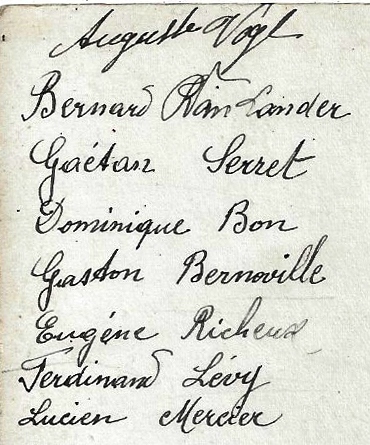 Auguste Vogl
Bernard Van Lander
Gaétan Serret
Dominique Bon
Gaston Bernoville
Eugéne Richeux
Ferdinand Lévy
Lucien Mercier